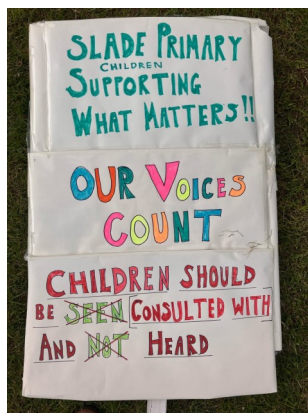 SLADE PRIMARY
CHILDREN
SUPPORTING
WHAT MATTERS!!
OUR VOICES
COUNT
CHILDREN SHOULD
BE SEEN CONSULTED WITH
AND NOT HEARD